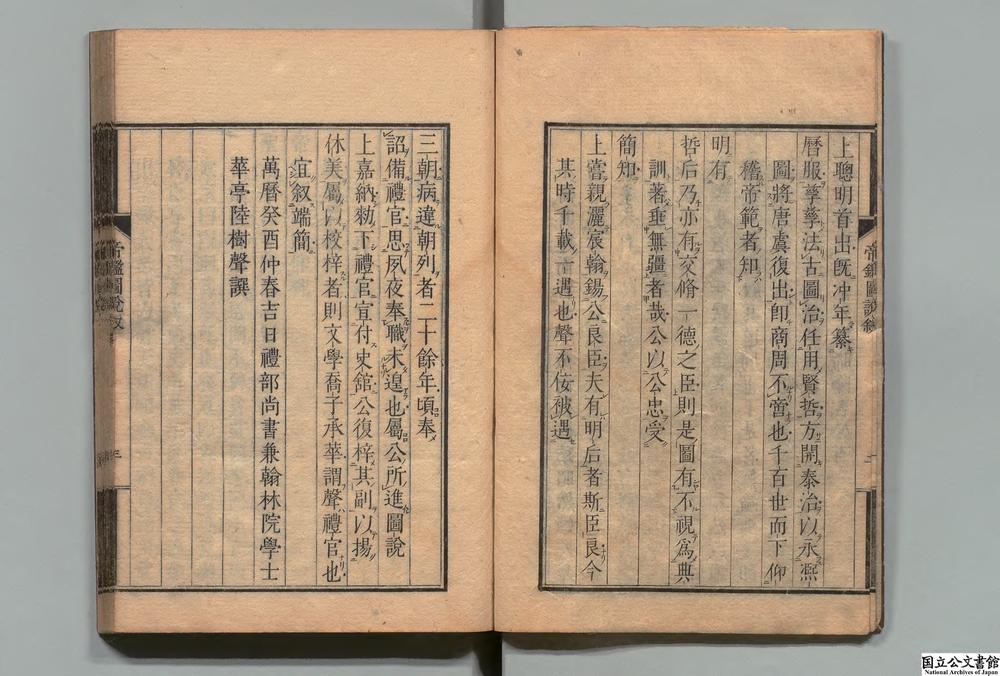 上聰明首出既冲年纂
曆服孳孳法古圖治任用賢哲方開泰治以永熙
圖將唐虞復出卽商周不啻也千百世而下仰
稽帝範者知
明有
哲后乃亦有交脩一德之臣則是圖有不視爲典
訓著垂無疆者哉公以公忠受
簡知
上嘗親灑宸翰錫公良臣夫有明后者斯臣良今
其時千載一遇也聲不佞被遇
三朝病違朝列者二十餘年頃奉
詔備禮官思夙夜奉職未遑也屬公所進圖說
上嘉納勑下禮官宣付史館公復梓其副以揚
休美屬以校梓者則文學喬子承華謂聲禮官也
宜叙端簡
萬曆癸酉仲春吉日禮部尚書兼翰林院學士
華亭陸樹聲譔
帝鑑圖說叙
三
国立公文書館
National Archives of Japan